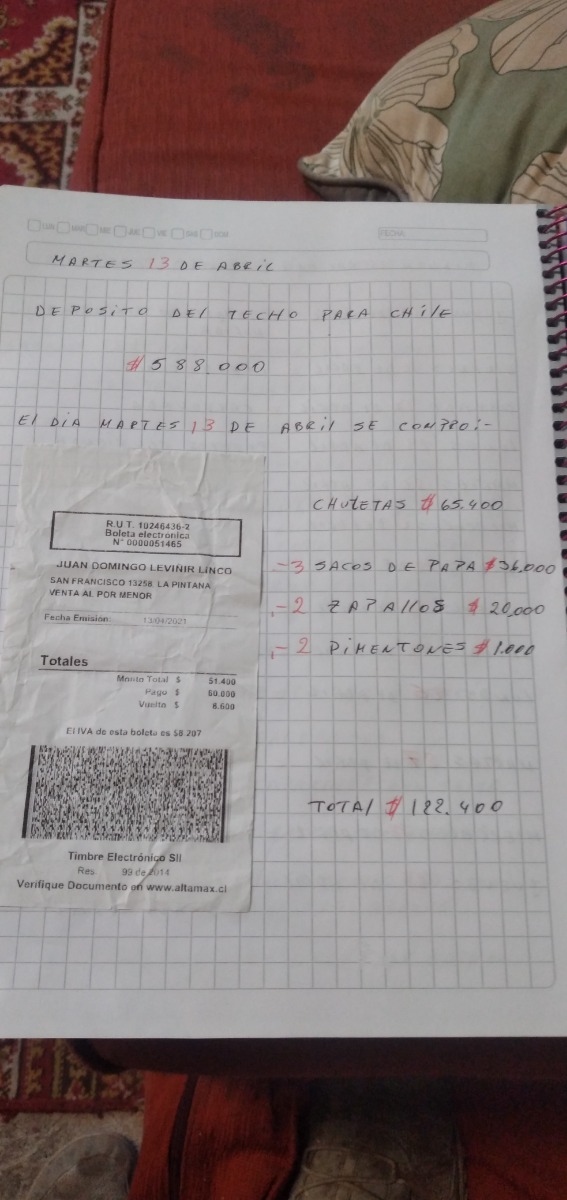 LUN MAR MIE JUE VIE SAB DOM
FECHA
MARTES 13 DE ABRIL
DEPOSITO DEL TECHO PARA CHILE
$588.000
El DIA MARTES 13 DE ABRIL SE COMPRO:-
CHULETAS $65.400
-3 SACOS DE PAPA $36.000
-2 ZAPALLOS $20.000
-2 PIMENTONES $1.000
TOTAL $122.400
R.U.T. 10246436-2
Boleta electronica
N° 0000051465
JUAN DOMINGO LEVINIR LINCO
SAN FRANCISCO 13258 LA PINTANA
VENTA AL POR MENOR
Fecha Emisión: 13/04/2021
Totales
Monto Total $ 51.400
Pago $ 60.000
Vuelto $ 8.600
El IVA de esta boleta es $8.207
Timbre Electrónico SII
Res 99 de 2014
Verifique Documento en www.altamax.cl